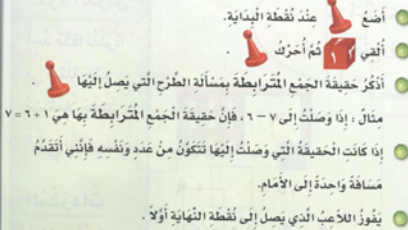 أَضَعُ عِنْدَ نُقْطَةِ الْبِدَايَةِ.
أُلْقِي ١ ثُمَّ أُحَرِّكُ .
أَذْكُرُ حَقِيقَةَ الْجَمْعِ الْمُتَرَابِطَةَ بِمَسْأَلَةِ الطَّرْحِ الَّتِي يَصِلُ إِلَيْهَا .
مِثَالٌ : إِذَا وَصَلْتُ إِلَى ٧ – ٦ ، فَإِنَّ حَقِيقَةَ الْجَمْعِ الْمُتَرَابِطَةَ بِهَا هِيَ ١ + ٦ = ٧
إِذَا كَانَتِ الْحَقِيقَةُ الَّتِي وَصَلْتُ إِلَيْهَا تَتَكَوَّنُ مِنْ عَدَدٍ وَنَفْسِهِ فَإِنَّنِي أَتَقَدَّمُ
مَسَافَةً وَاحِدَةً إِلَى الْأَمَامِ.
يَفُوزُ اللَّاعِبُ الَّذِي يَصِلُ إِلَى نُقْطَةِ النِّهَايَةِ أَوَّلاً .